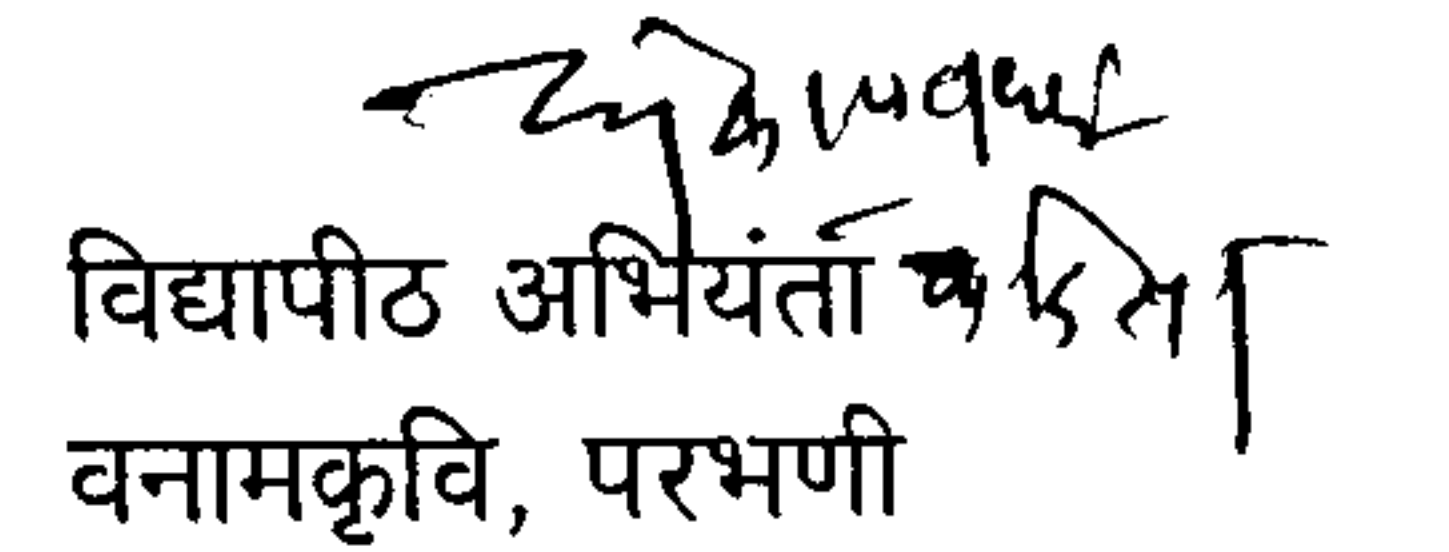 विद्यापीठ अभियंता करिता
वनामकृवि, परभणी